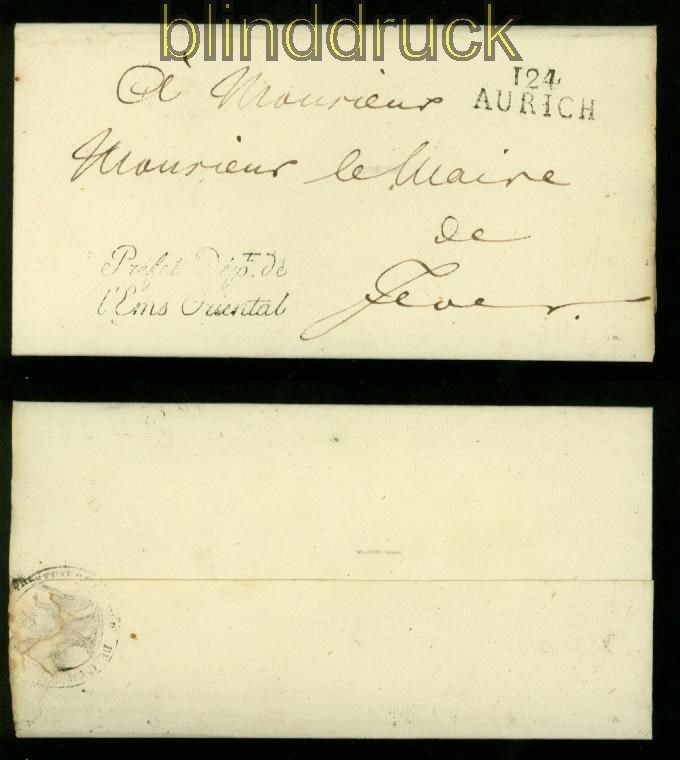 blinddruck
124
AURICH
A Monsieur
Monsieur le Maire
de
Jever.
Préfet Dépt. de
l'Ems Oriental